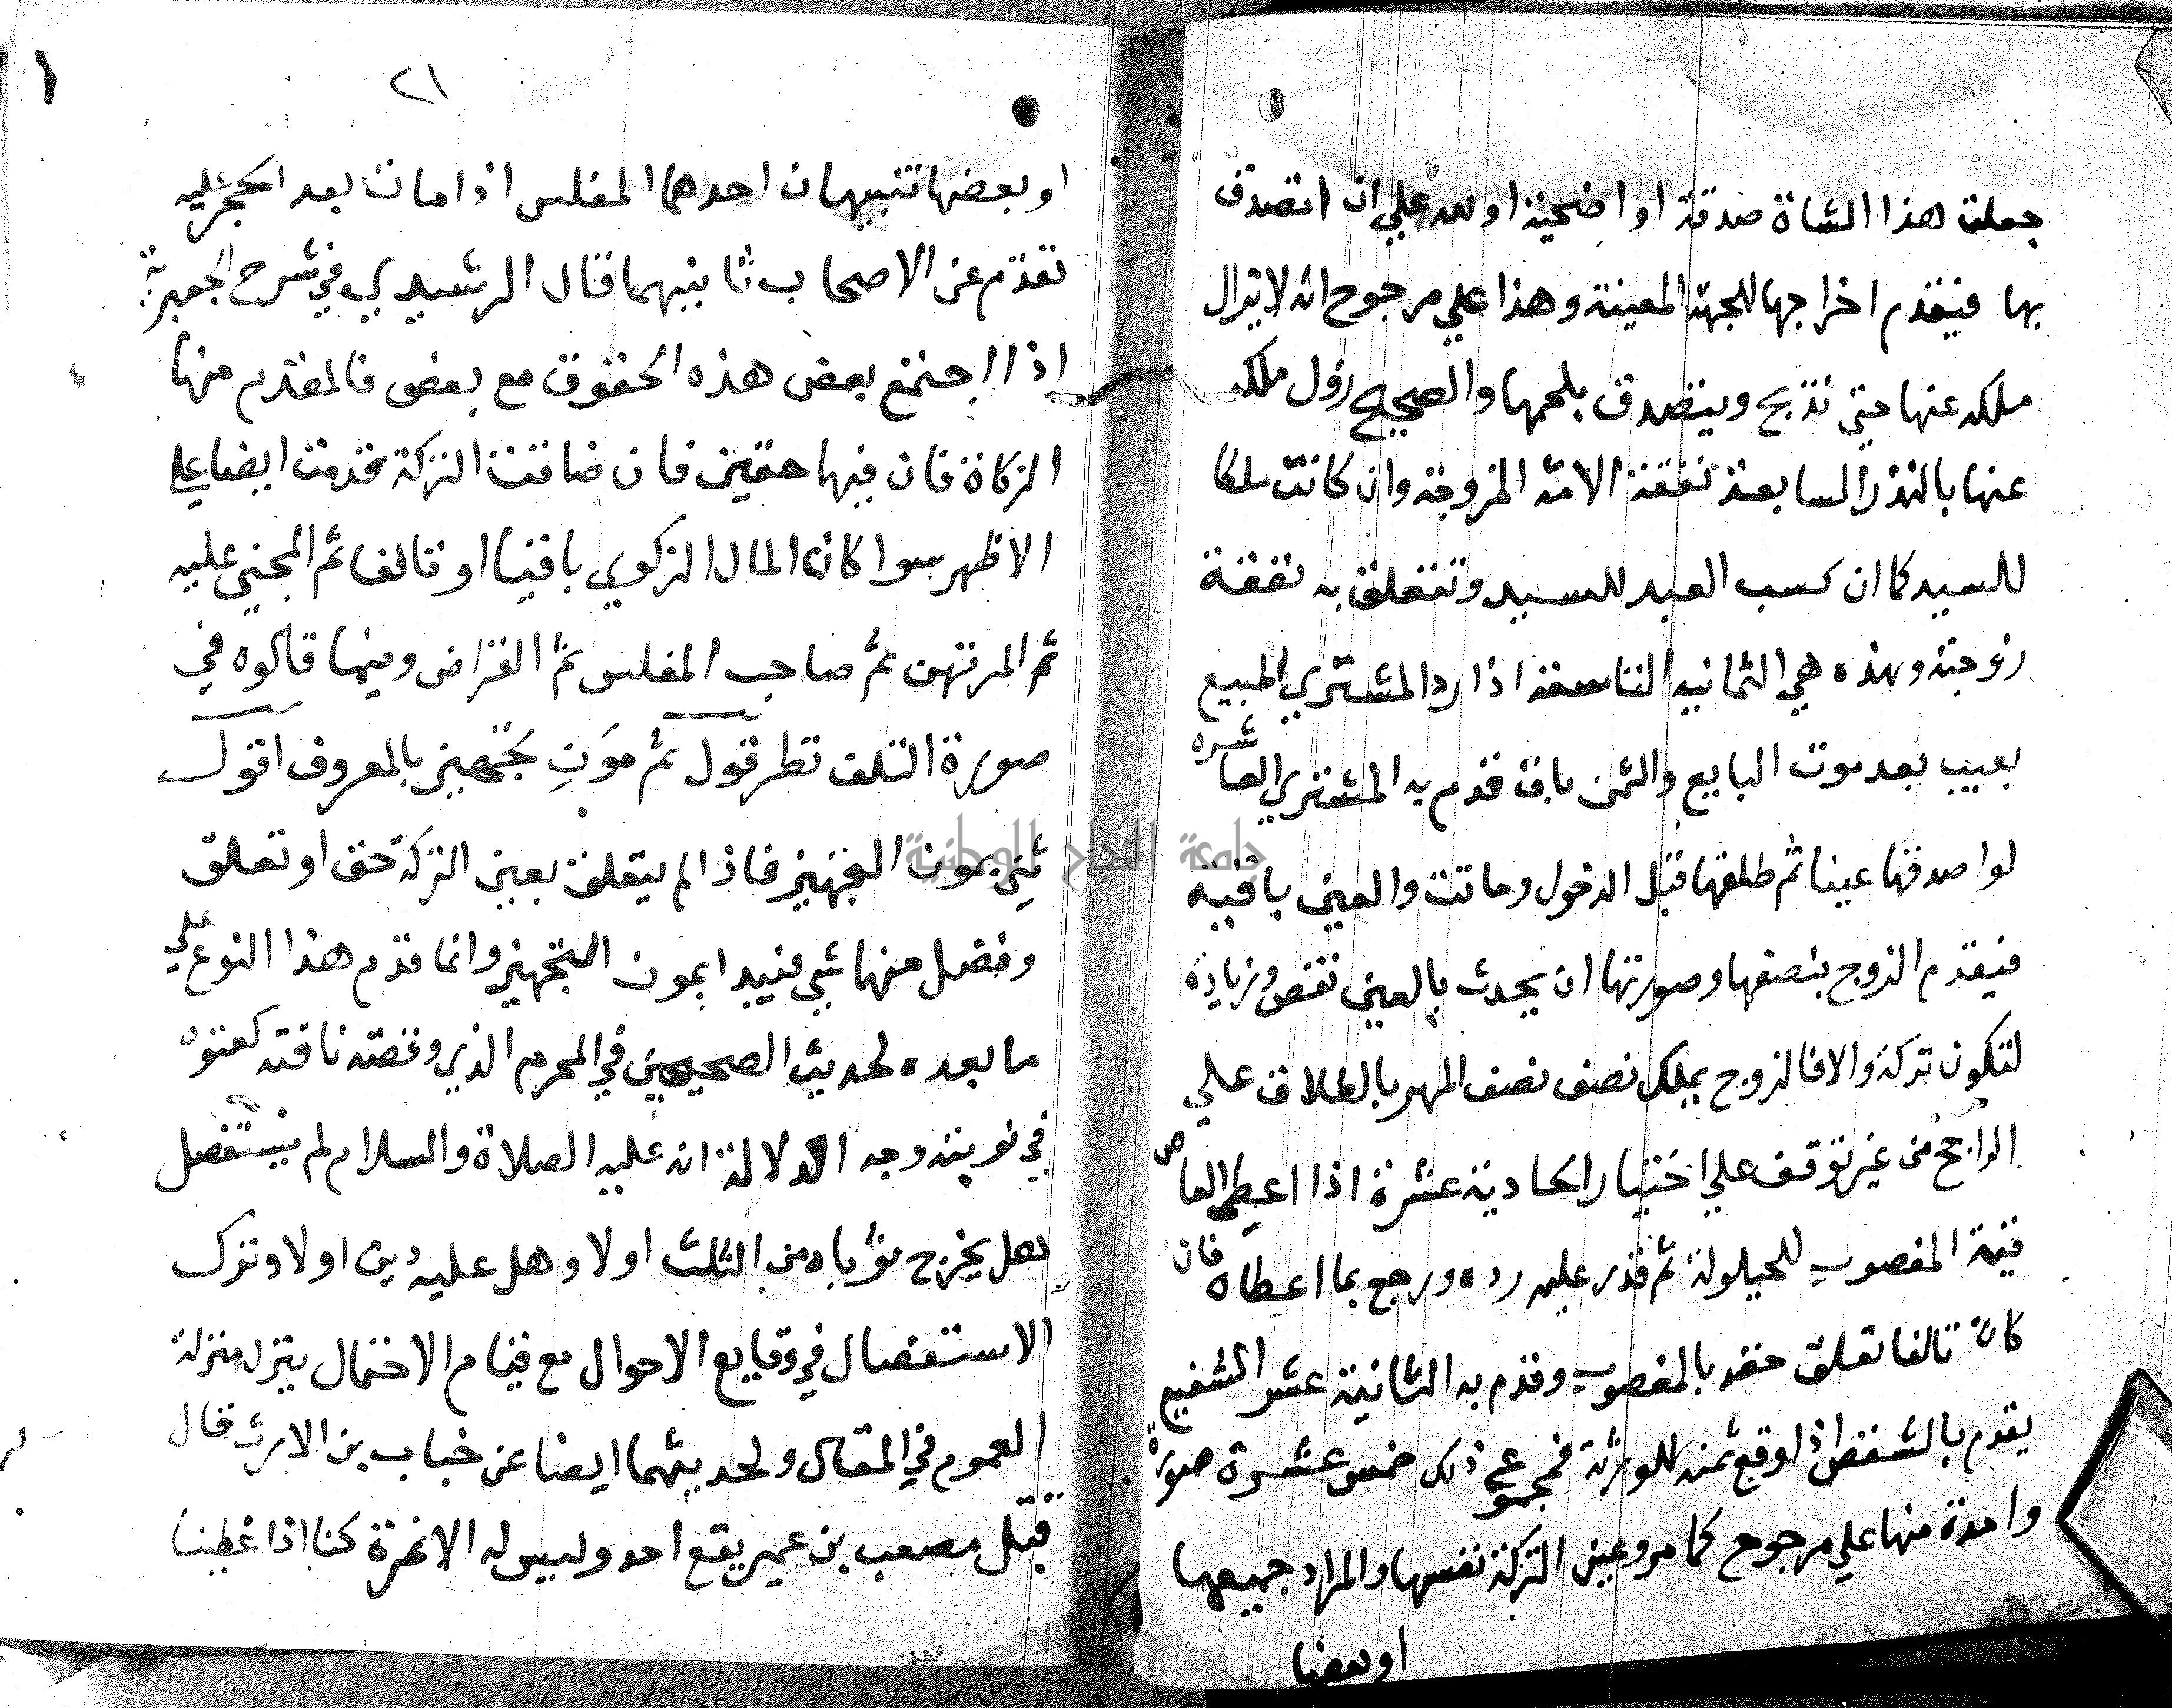 جعلت هذا الشاة صدقة او اضحية اولله علي ان اتصدق
بها فيقدم اخراجها للجهة المعينة وهذا علي مرجوح انه لا يزال
ملكه عنها حتي تذبح ويتصدق بلحمها والصحيح زول ملكه
عنها بالنذر السابعة نفقة الامة المزوجة وان كانت ملكا
للسيد كما ان كسب العبد للسيد وتتعلق به نفقة
زوجته وهذه هي الثمانيه التاسعة اذا رد المشتري المبيع
بعيب بعد موت البايع والثمن باق قدم به المشتري العاشره
لو اصدقها عينا ثم طلقها قبل الدخول وماتت والعين باقيه
فيقدم الزوج بنصفها وصورتها ان يحدث بالعين نقص وزيادة
لتكون تركة والا فالزوج يملك نصف نصف المهر بالطلاق علي
الراجح من غير توقف علي اختيار الحادية عشرة اذا اعطي الغاصب
قيمة المغصوب للحيلولة ثم قدر عليه رده ورجع بما اعطاه فان
كان تالفا تعلق حقه بالمغصوب وقدم به الثانية عشر الشفيع
يقدم بالشقص اذا وقع ثمنه للورثة فمجموع ذلك خمس عشرة صورة
واحدة منها علي مرجوح كما مر وعين التركة نفسها والمراد جميعها
او بعضها
٢١
او بعضها تنبيهان احدهما المفلس اذا مات بعد الحجر عليه
تقدم عن الاصحاب ثانيهما قال الرشيدي في شرح الجعبرية
اذا اجتمع بعض هذه الحقوق مع بعض فالمقدم منها
الزكاة فان فيها حقين فان ضاقت التركة قدمت ايضا علي
الاظهر سوا كان المال الزكوي باقيا او تالفا ثم المجني عليه
ثم المرتهن ثم صاحب المفلس ثم القراض وفيما قالوه في
صورة التلف نظر قول ثم مون تجهيز بالمعروف اقول
ثني بمون التجهيز فاذا لم يتعلق بعين التركة حق او تعلق
وفضل منها شي فيبدا بمون التجهيز وانما قدم هذا النوع علي
ما بعده لحديث الصحيحين في المحرم الذي وقصته ناقته كفنوه
في ثوبيه وجه الدلالة انه عليه الصلاة والسلام لم يستفصل
هل يخرج ثوباه من الثلث اولا وهل عليه دين اولا وترك
الاستفصال في وقايع الاحوال مع قيام الاحتمال ينزل منزلة
العموم في المقال ولحديثهما ايضا عن خباب بن الارث قال
قتل مصعب بن عمير يقع احد وليس له الا نمرة كنا اذا غطينا
جامعة النجاح الوطنية